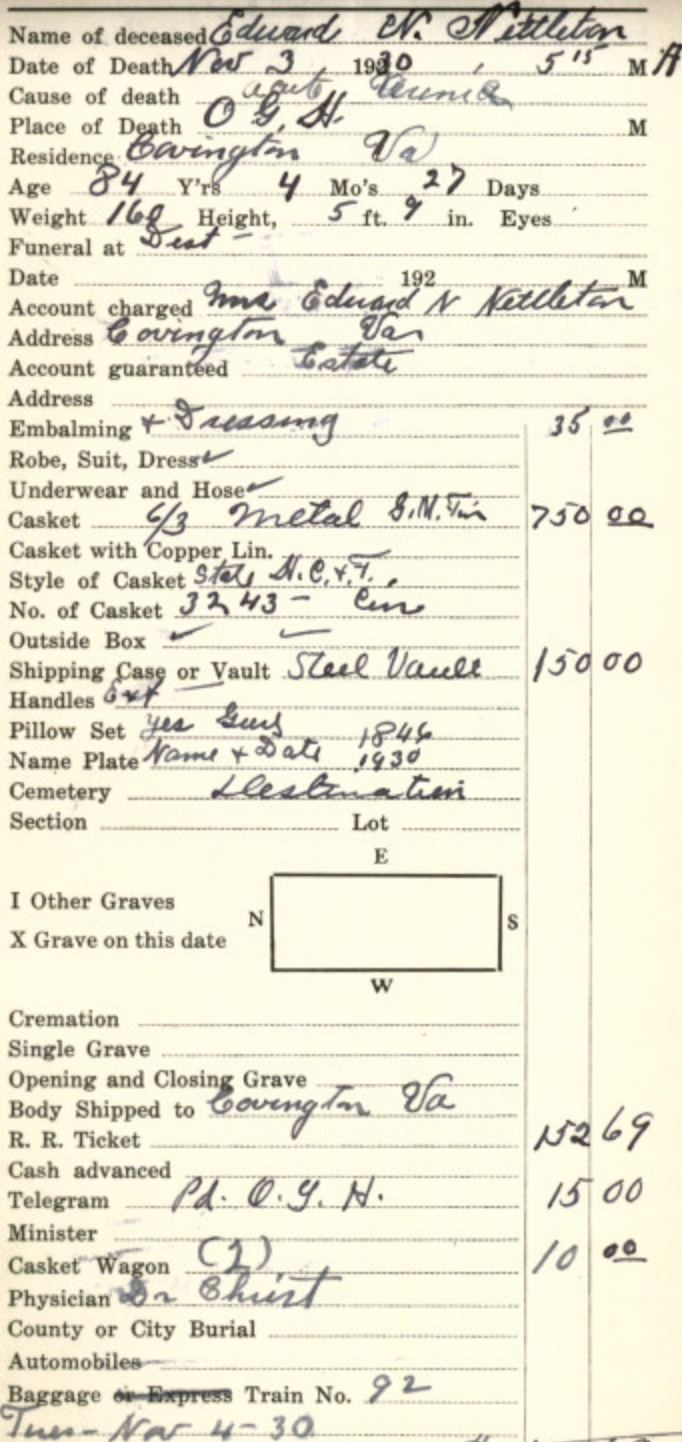 Name of deceased Edward N. Nettleton
Date of Death Nov 3 1930, 5 15 M A
Cause of death acute
Place of Death O G. H. M
Residence Covington Va
Age 84 Y'rs 4 Mo's 27 Days
Weight 160 Height, 5 ft. 9 in. Eyes
Funeral at Dest -
Date 192 M
Account charged Mrs Edward N Nettleton
Address Covington Va
Account guaranteed Estate
Address
Embalming + Dressing 35 00
Robe, Suit, Dress ✓
Underwear and Hose ✓
Casket 6/3 Metal 750 00
Casket with Copper Lin.
Style of Casket State H. C. + F.
No. of Casket 3243 - Cin
Outside Box ✓ ✓
Shipping Case or Vault Steel Vault 150 00
Handles Ext
Pillow Set yes 1846
Name Plate Name + Date 1930
Cemetery Destination
Section Lot
E
I Other Graves
N S
X Grave on this date
W
Cremation
Single Grave
Opening and Closing Grave
Body Shipped to Covington Va
R. R. Ticket 152 69
Cash advanced
Telegram Pd. O. G. H. 15 00
Minister
Casket Wagon (2) 10 00
Physician Dr Christ
County or City Burial
Automobiles
Baggage or Express Train No. 92
Tues - Nov 4-30